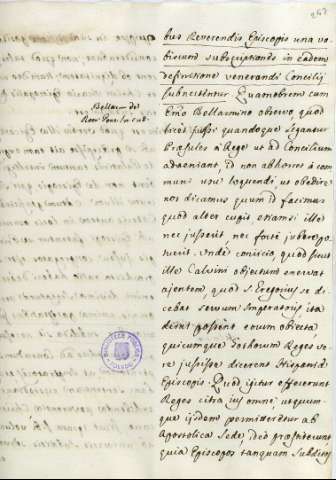 267
bus Reverendis Episcopis una vo-
biscum subscriptionis in eadem
definitione venerandi Concilij
subnectuntur. Quamobrem cum
Emo Bellarmino observo, quod
licet jussi quandoque legantur
Præsules à Rege ut ad Concilium
adveniant, id non abhorret à com-
muni usu loquendi, ut obedire
nos dicamus quum id facimus
quod alter cupit etiamsi ille
nec jusserit nec forte jubere po-
tuerit. Unde conijcio, quod sicut
ille Calvini objectum enervat
ajentem, quod S. Gregorius se di-
cebat servum Imperatoris, ita
dilui possent eorum objecta
quicumque Gothorum Reges ve-
re jussisse dicerent Hispaniæ
Episcopis. Quod igitur effecerunt
Reges citra jus omne, utcum-
que ijsdem permitteretur ab
Apostolica Sede, ideo præstiterunt,
quia Episcopos tanquam subditos
Bellarm. de
Rom. Pont. la
BIBLIOTECA PUBLICA
TOLEDO